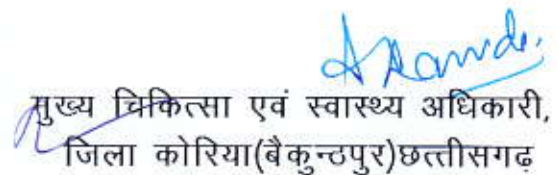 मुख्य चिकित्सा एवं स्वास्थ्य अधिकारी,
जिला कोरिया(बैकुन्ठपुर)छत्तीसगढ़